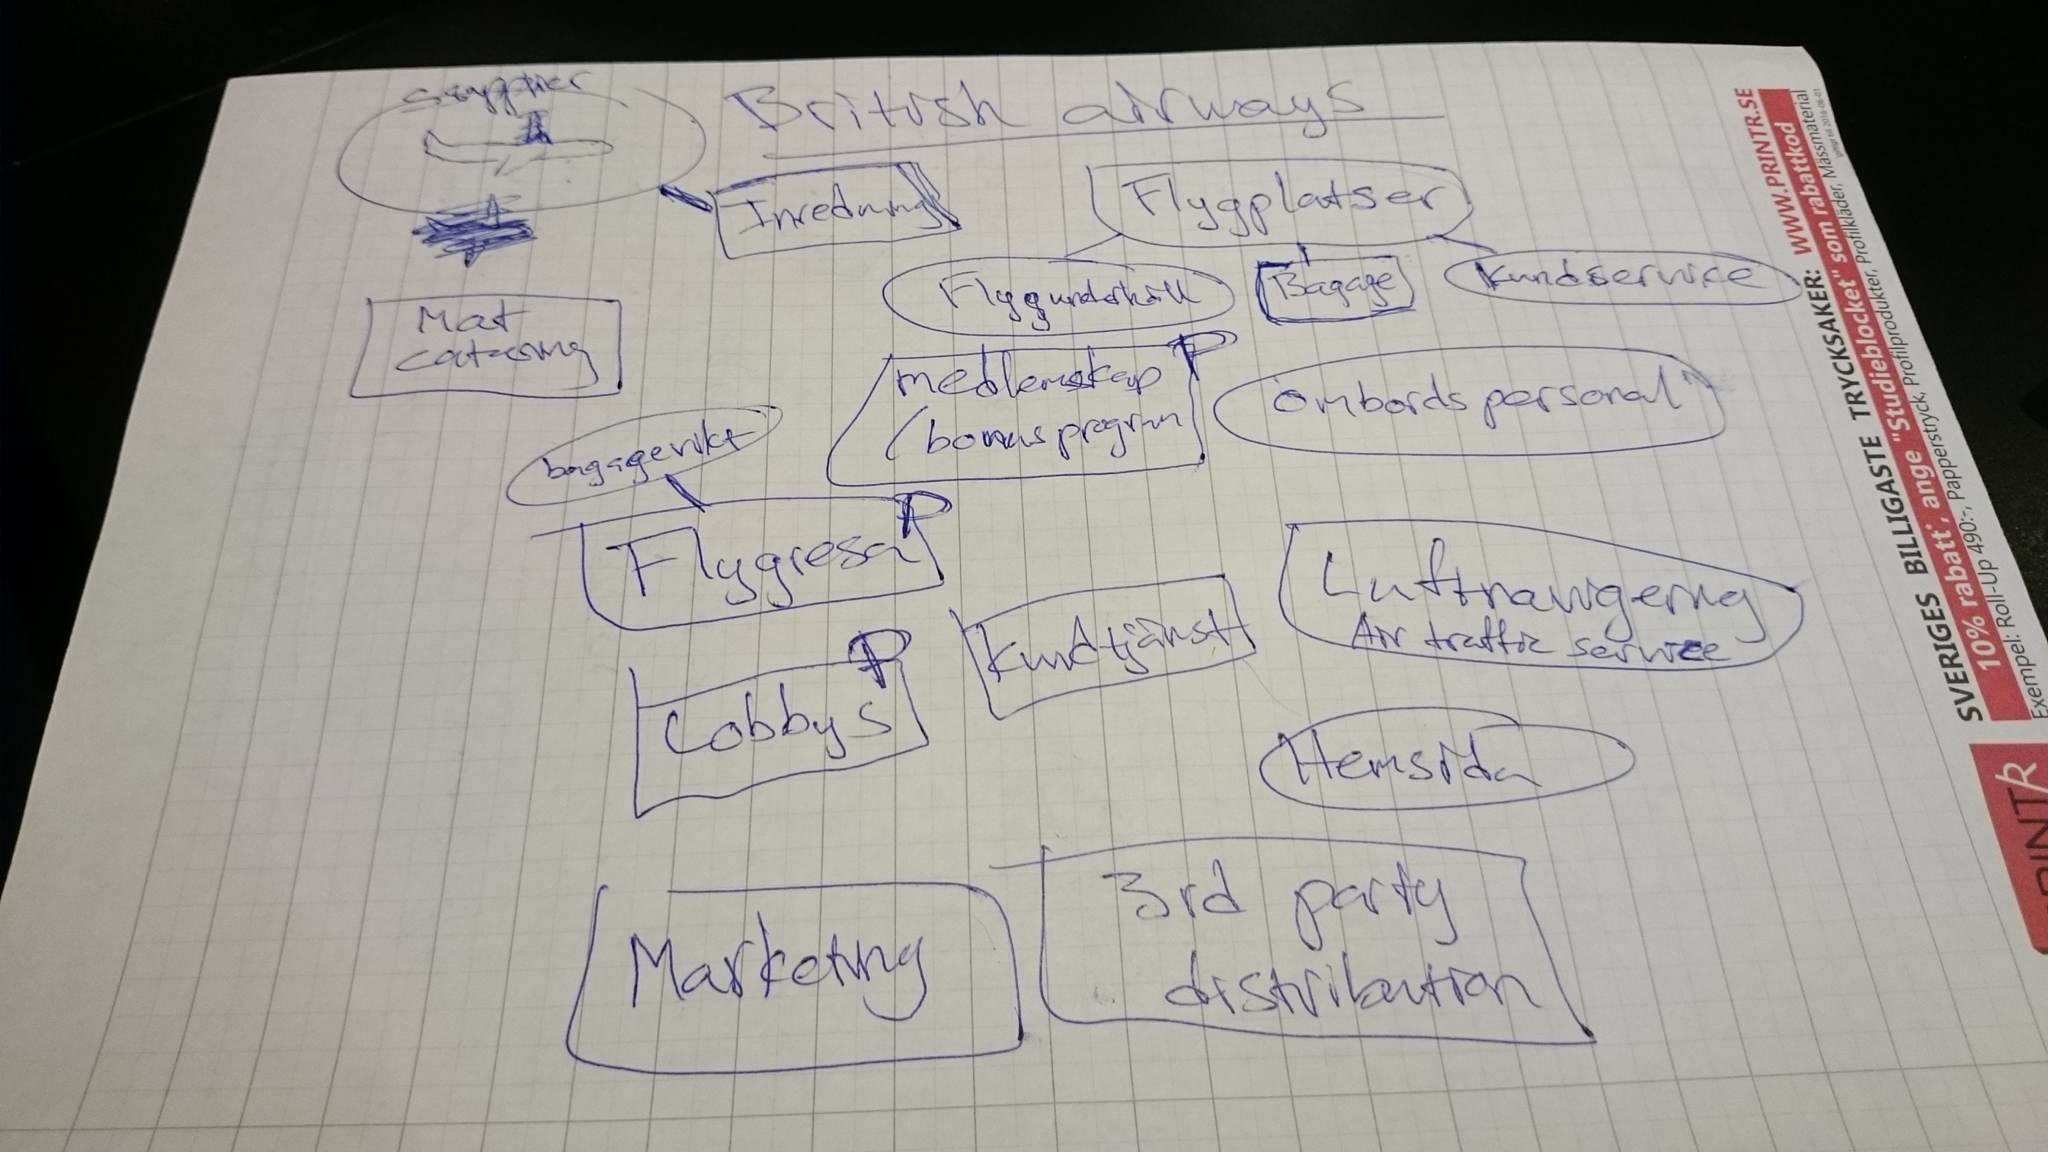 British airways
Inredning
Flygplatser
Flygunderhåll
Bagage
Kundservice
Mat
catering
medlemskap P
(bonusprogram
Ombordspersonal
bagagevikt
Flygresa P
Luftnavigering
Air traffic service
Kundtjänst
Lobbys P
Hemsida
Marketing
3rd party
distribution
SVERIGES BILLIGASTE TRYCKSAKER: WWW.PRINTR.SE
10% rabatt, ange "Studieblocket" som rabattkod
Exempel: Roll-Up 490:-, Papperstryck, Profilprodukter, Profilkläder, Mässmaterial